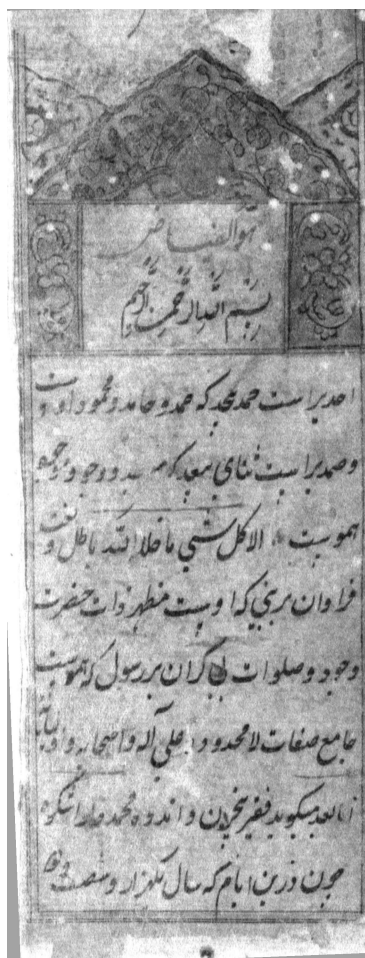 هو الفیاض
بسم الله الرحمن الرحیم
احدیرا ست حمد بیحد که حمد و حامد و محمود اوست
و صمدیرا ست ثنای بیعد که
هموست الا کل شیی ما خلا الله باطل و نعت
فراوان بر نبی که اوست مظهر ذات حضرت
وجود و صلوات بی کران بر رسول که هموست
جامع صفات لا محدود و علی آله و اصحابه و
اما بعد میکوید فقیر و اندوه محمد دارا شکوه
چون درین ایام که سال یکهزار و شصت و